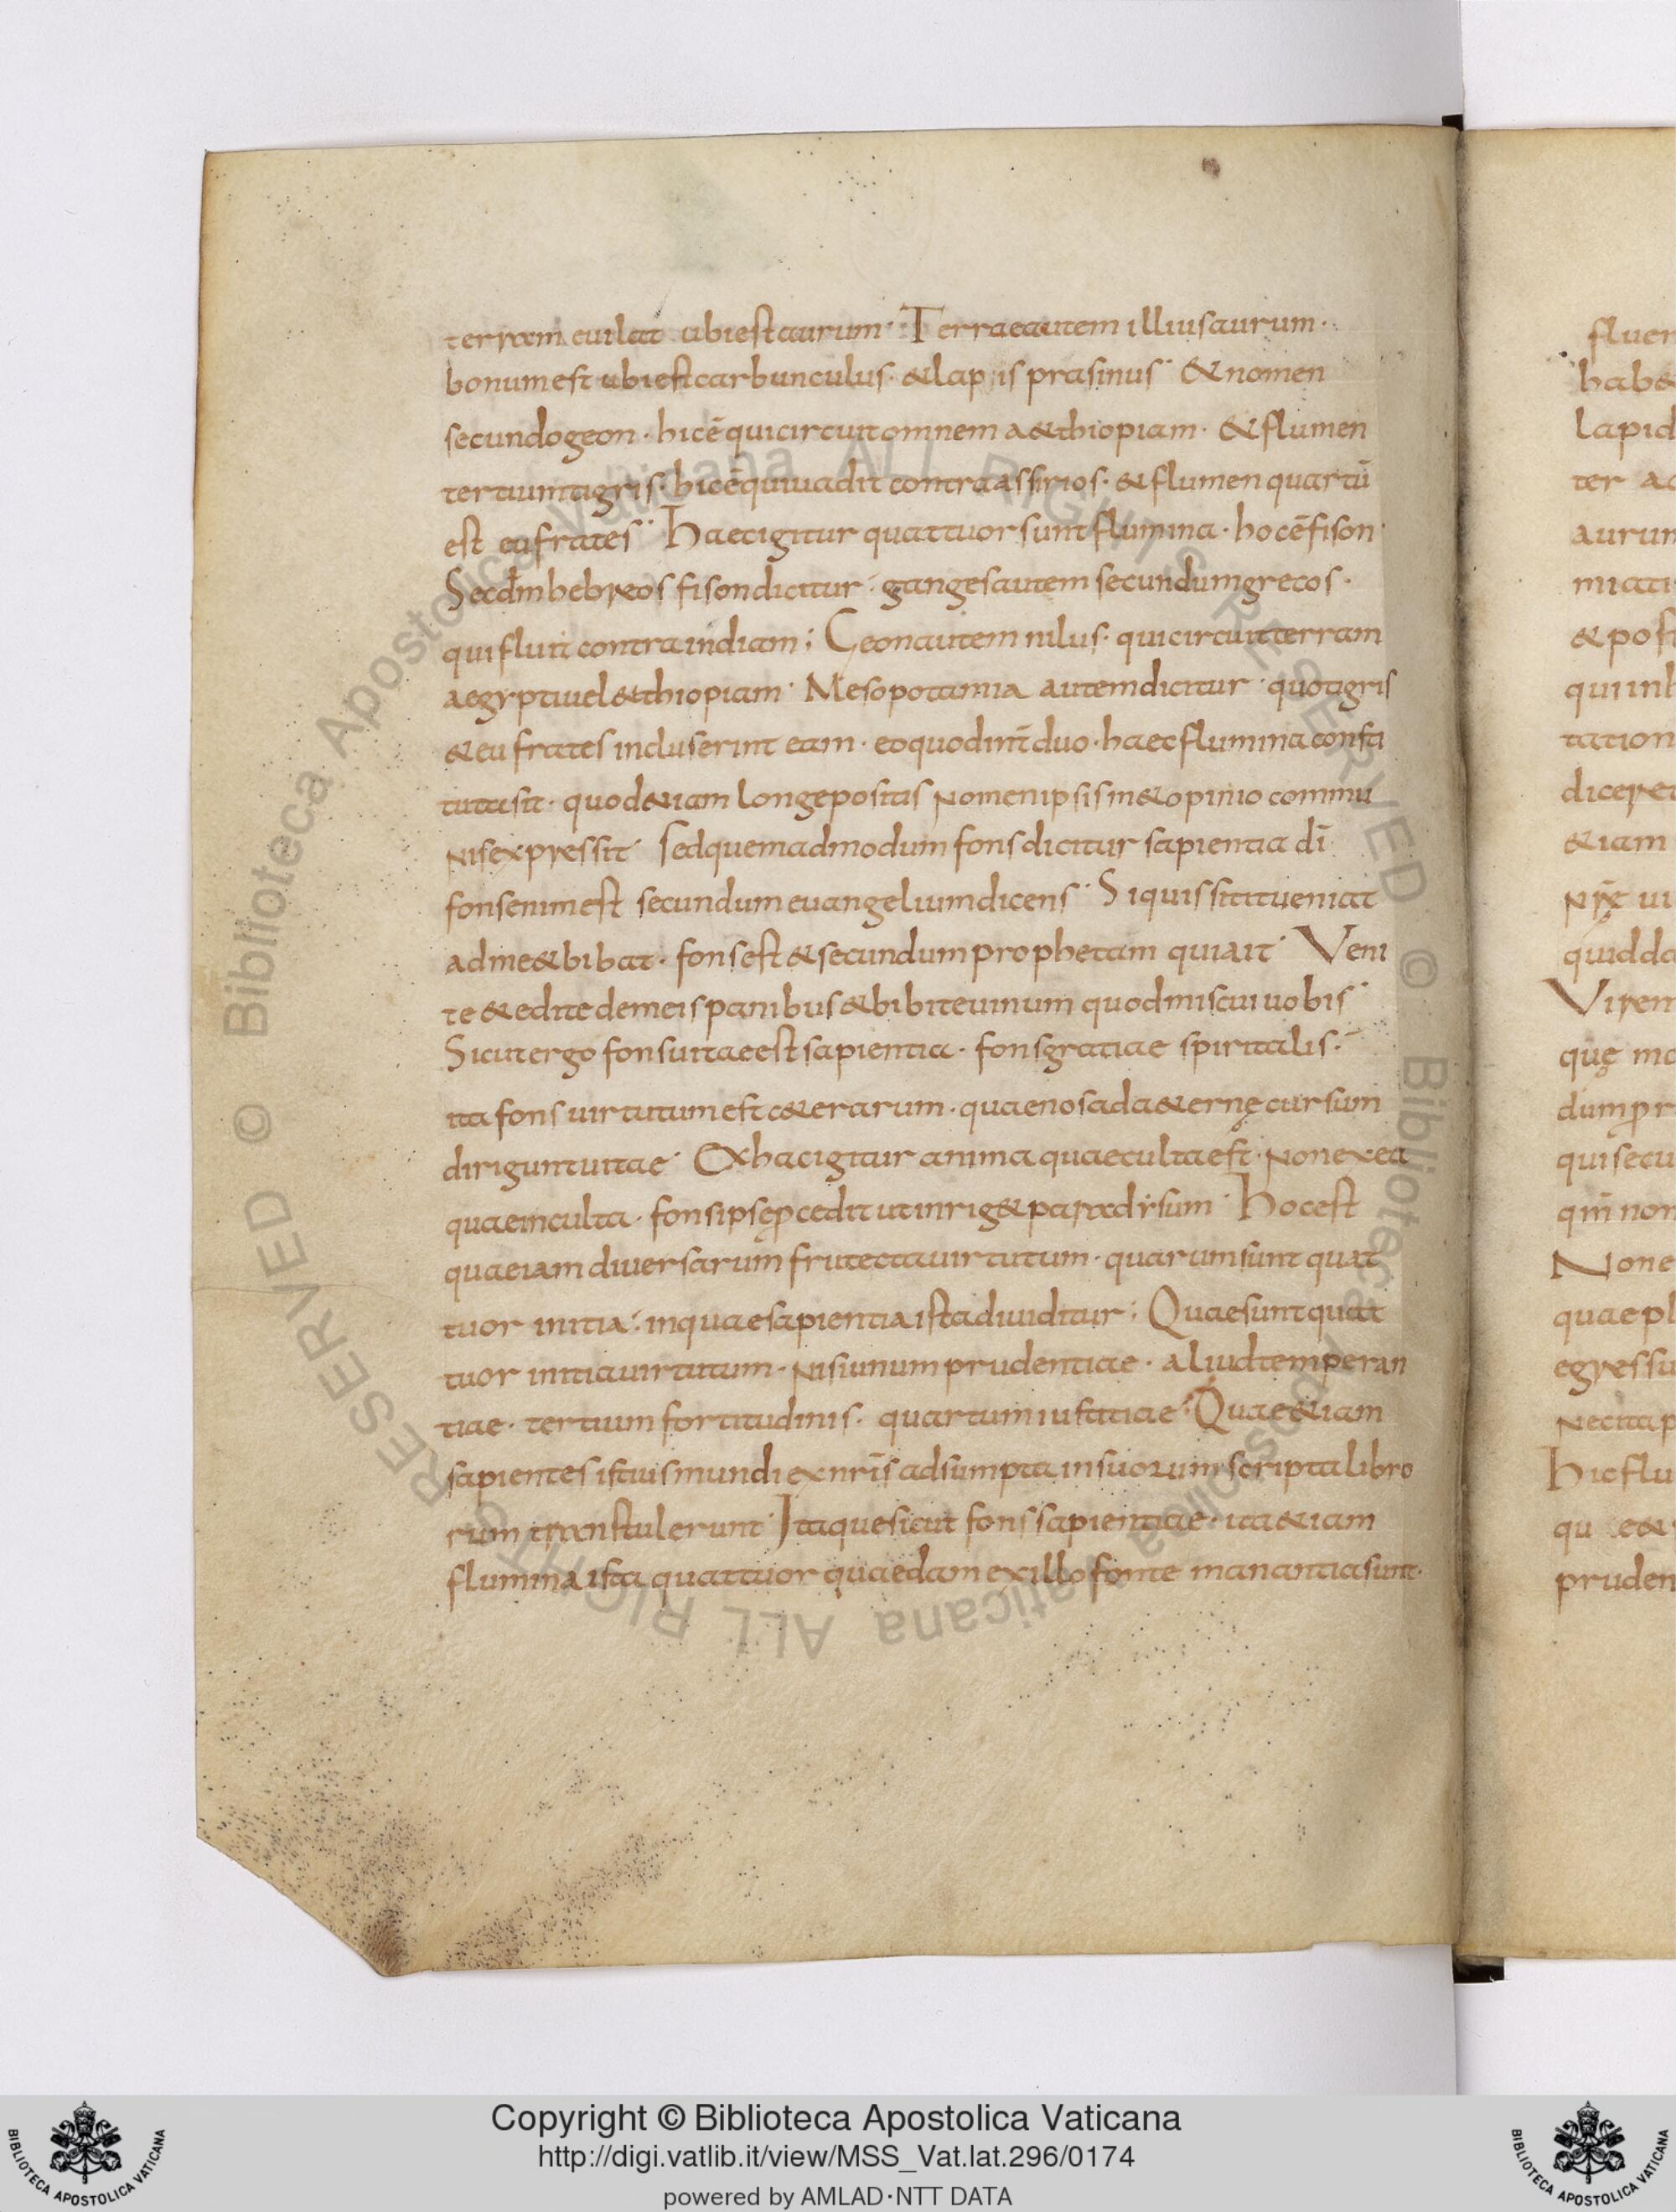 terram euilat ubi est aurum· Terrae autem illius aurum·
bonum est ubi est carbunculus· & lapis prasinus· & nomen
secundo geon· hic ē qui circuit omnem a&thiopiam· & flumen
tertium tigris· hic ē qui uadit contra assirios· & flumen quartū
est eufrates· Haec igitur quattuor sunt flumina· hoc ē fison·
Secdm hebreos fison dicitur· ganges autem secundum grecos·
qui fluit contra indiam; Geon autem nilus· qui circuit terram
aegypti uel &thiopiam· Mesopotamia autem dicitur· quo tigris
& eufrates incluserint eam· eo quod int̄ duo· haec flumina consti
tuta sit· quod &iam longe positis nomen ipsis in & opinio commu
nis expressit· sed quemadmodum fons dicitur sapientia dī
fons enim est secundum euangelium dicens· Si quis sitit ueniat
ad me & bibat· fons est & secundum prophetam qui ait· Veni
te & edite de meis panibus & bibite uinum quod miscui uobis·
Sicut ergo fons uitae est sapientia· fons gratiae spiritalis·
ita fons uirtutum est c&erarum· quae nos ad a&ernę cursum
dirigunt uitae· Ex hac igitur anima quae culta est· non ex ea
quae inculta· fons ipse p̱cedit ut inrig& paradysum· Hoc est
quae iam diuersarum frutecta uirtutum· quarum sunt quat
tuor initia· in quae sapientia ista diuiditur; Quae sunt quat
tuor initia uirtutum· nisi unum prudentiae· aliud temperan
tiae· tertium fortitudinis· quartum iustitiae· Quae &iam
sapientes istius mundi ex nr̄is adsumpta in suorum scripta libro
rum transtulerunt· Itaque sicut fons sapientiae· ita &iam
flumina ista quattuor quaedam ex illo fonte manantia sunt·
fluen
hab&
lapid
ter ad
aurum
miati
& post
qui inh
tation
dicere
&iam
quidda
Virem
quę mo
dum pr
qui secu
qm̄ non
None
quae pl
egressu
nec ita p
Hic flu
pruden
© Biblioteca Apostolica Vaticana ALL RIGHTS RESERVED © Biblioteca Apostolica Vaticana ALL RIGHTS RESERVED
Copyright © Biblioteca Apostolica Vaticana
http://digi.vatlib.it/view/MSS_Vat.lat.296/0174
powered by AMLAD·NTT DATA
BIBLIOTECA APOSTOLICA VATICANA
BIBLIOTECA APOSTOLICA VATICANA